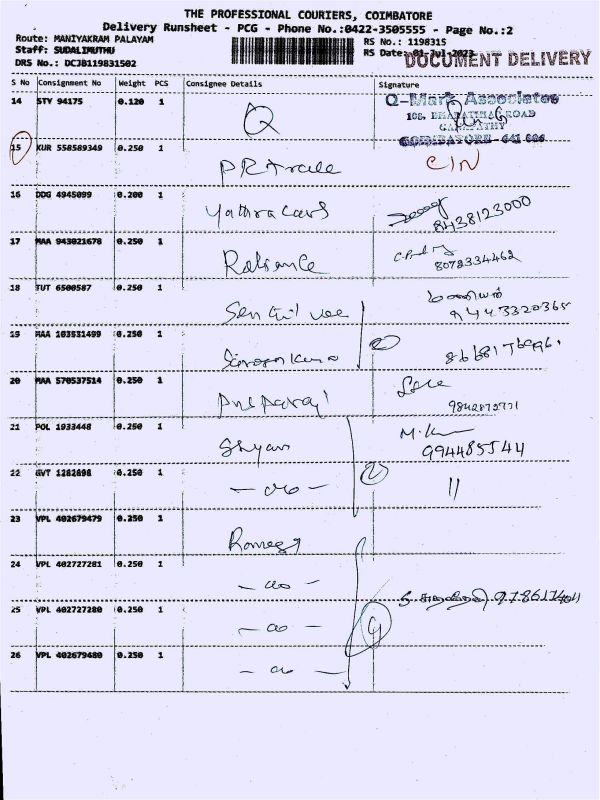 THE PROFESSIONAL COURIERS, COIMBATORE
Delivery Runsheet - PCG - Phone No.:0422-3505555 - Page No.:2
Route: MANIYAKRAM PALAYAM
RS No.: 1198315
Staff: SUDALIMUTHU
RS Date: 01-Jul-2023
DRS No.: DCJB119831502
DOCUMENT DELIVERY
S No Consignment No Weight PCS Consignee Details Signature
14 STY 94175 0.120 1 Q
Q-Mark Associates
108, BHARATHIAR ROAD
GANAPATHY
COIMBATORE - 641 006
15 KUR 558589349 0.250 1 CIN
16 DDG 4945099 0.200 1 Yathra Cars 8438123000
17 MAA 943021678 0.250 1 Reliance 8072334462
18 TUT 6500587 0.250 1 9443320365
19 MAA 103531499 0.250 1
20 MAA 570537514 0.250 1
21 POL 1933448 0.250 1 Shyam M.K 994485544
22 GVT 0.250 1 - do - 11
23 VPL 402679479 0.250 1
24 VPL 402727281 0.250 1 - do -
25 VPL 402727280 0.250 1 - do -
26 VPL 402679480 0.250 1 - do -